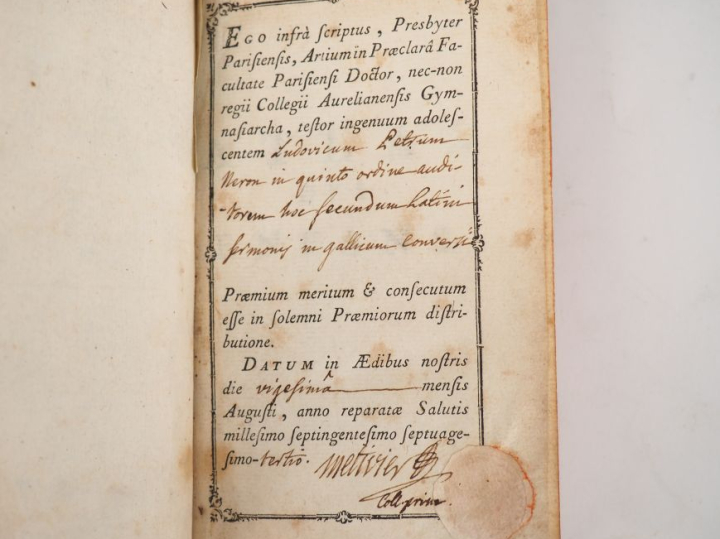 EGO infrà ſcriptus, Presbyter
Pariſienſis, Artium in Præclarâ Fa-
cultate Pariſienſi Doctor, nec-non
regii Collegii Aurelianenſis Gym-
naſiarcha, teſtor ingenuum adoleſ-
centem Ludovicum Petrum
Neron in quinto ordine audi-
-torem hoc ſecundum latini
ſermonis in gallicum conversi
Præmium meritum & conſecutum
eſſe in ſolemni Præmiorum diſtri-
butione.
DATUM in Ædibus noſtris
die vigeſimâ mensis
Auguſti, anno reparatæ Salutis
milleſimo ſeptingenteſimo ſeptuage-
ſimo-tertio. Metivier
Coll. prim.